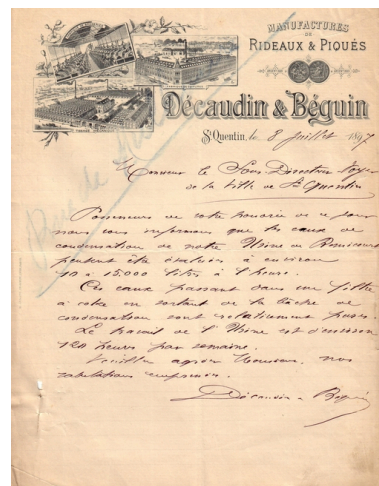 MANUFACTURES
DE
RIDEAUX & PIQUÉS
Décaudin & Béguin
St Quentin, le 8 Juillet 1897
Monsieur le Sous Directeur Voyer
de la Ville de St Quentin
Possesseurs de votre honorée de ce jour
nous vous informons que les eaux de
condensation de notre Usine de
peuvent être évaluées à environ
10 à 15.000 litres à l'heure.
Ces eaux passant dans un filtre
à coke en sortant de la bâche de
condensation sont relativement pures.
Le travail de l'Usine est d'environ
120 heures par semaine.
Veuillez agréer Monsieur, nos
salutations empressées.
Décaudin & Béguin